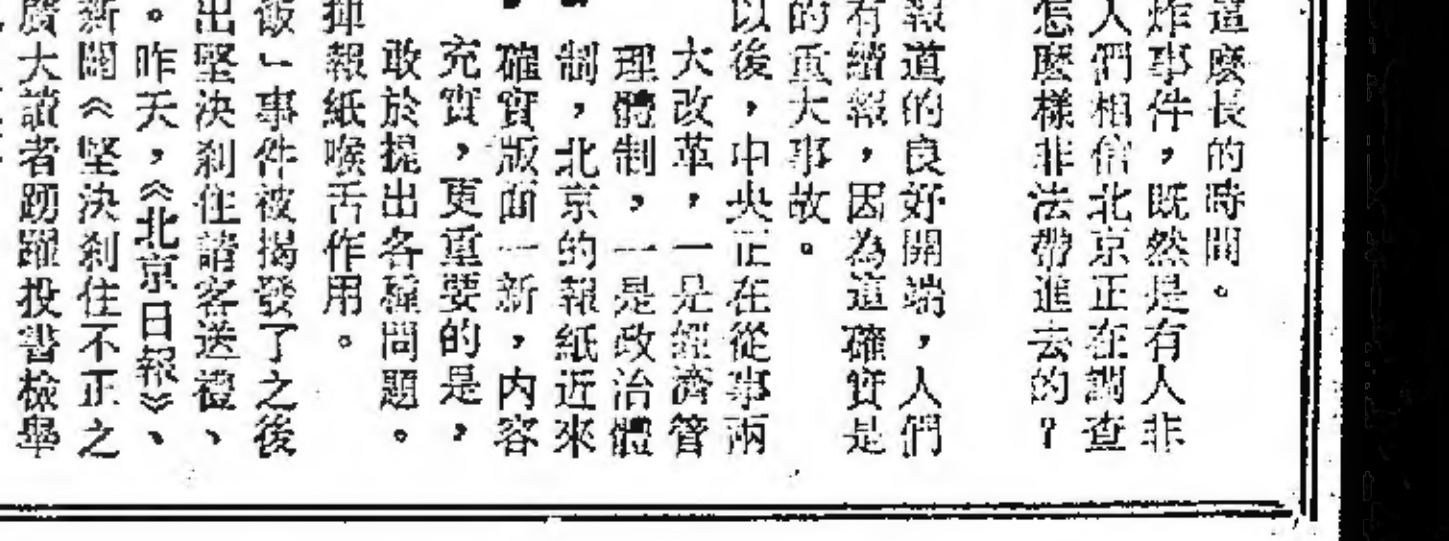 這麼長的時間。
炸事件，既然是有人非
人們相信北京正在調查
怎麼樣非法帶進去的？
報道的良好開端，人們
有續報，因為這確實是
的重大事故。
以後，中央正在從事兩
大改革，一是經濟管
理體制，一是政治體
制，北京的報紙近來
確實版面一新，內容
充實，更重要的是，
敢於提出各種問題。
揮報紙喉舌作用。
飯」事件被揭發了之後
出堅決剎住請客送禮、
。昨天，《北京日報》、
新聞《堅決剎住不正之
廣大讀者踴躍投書檢舉